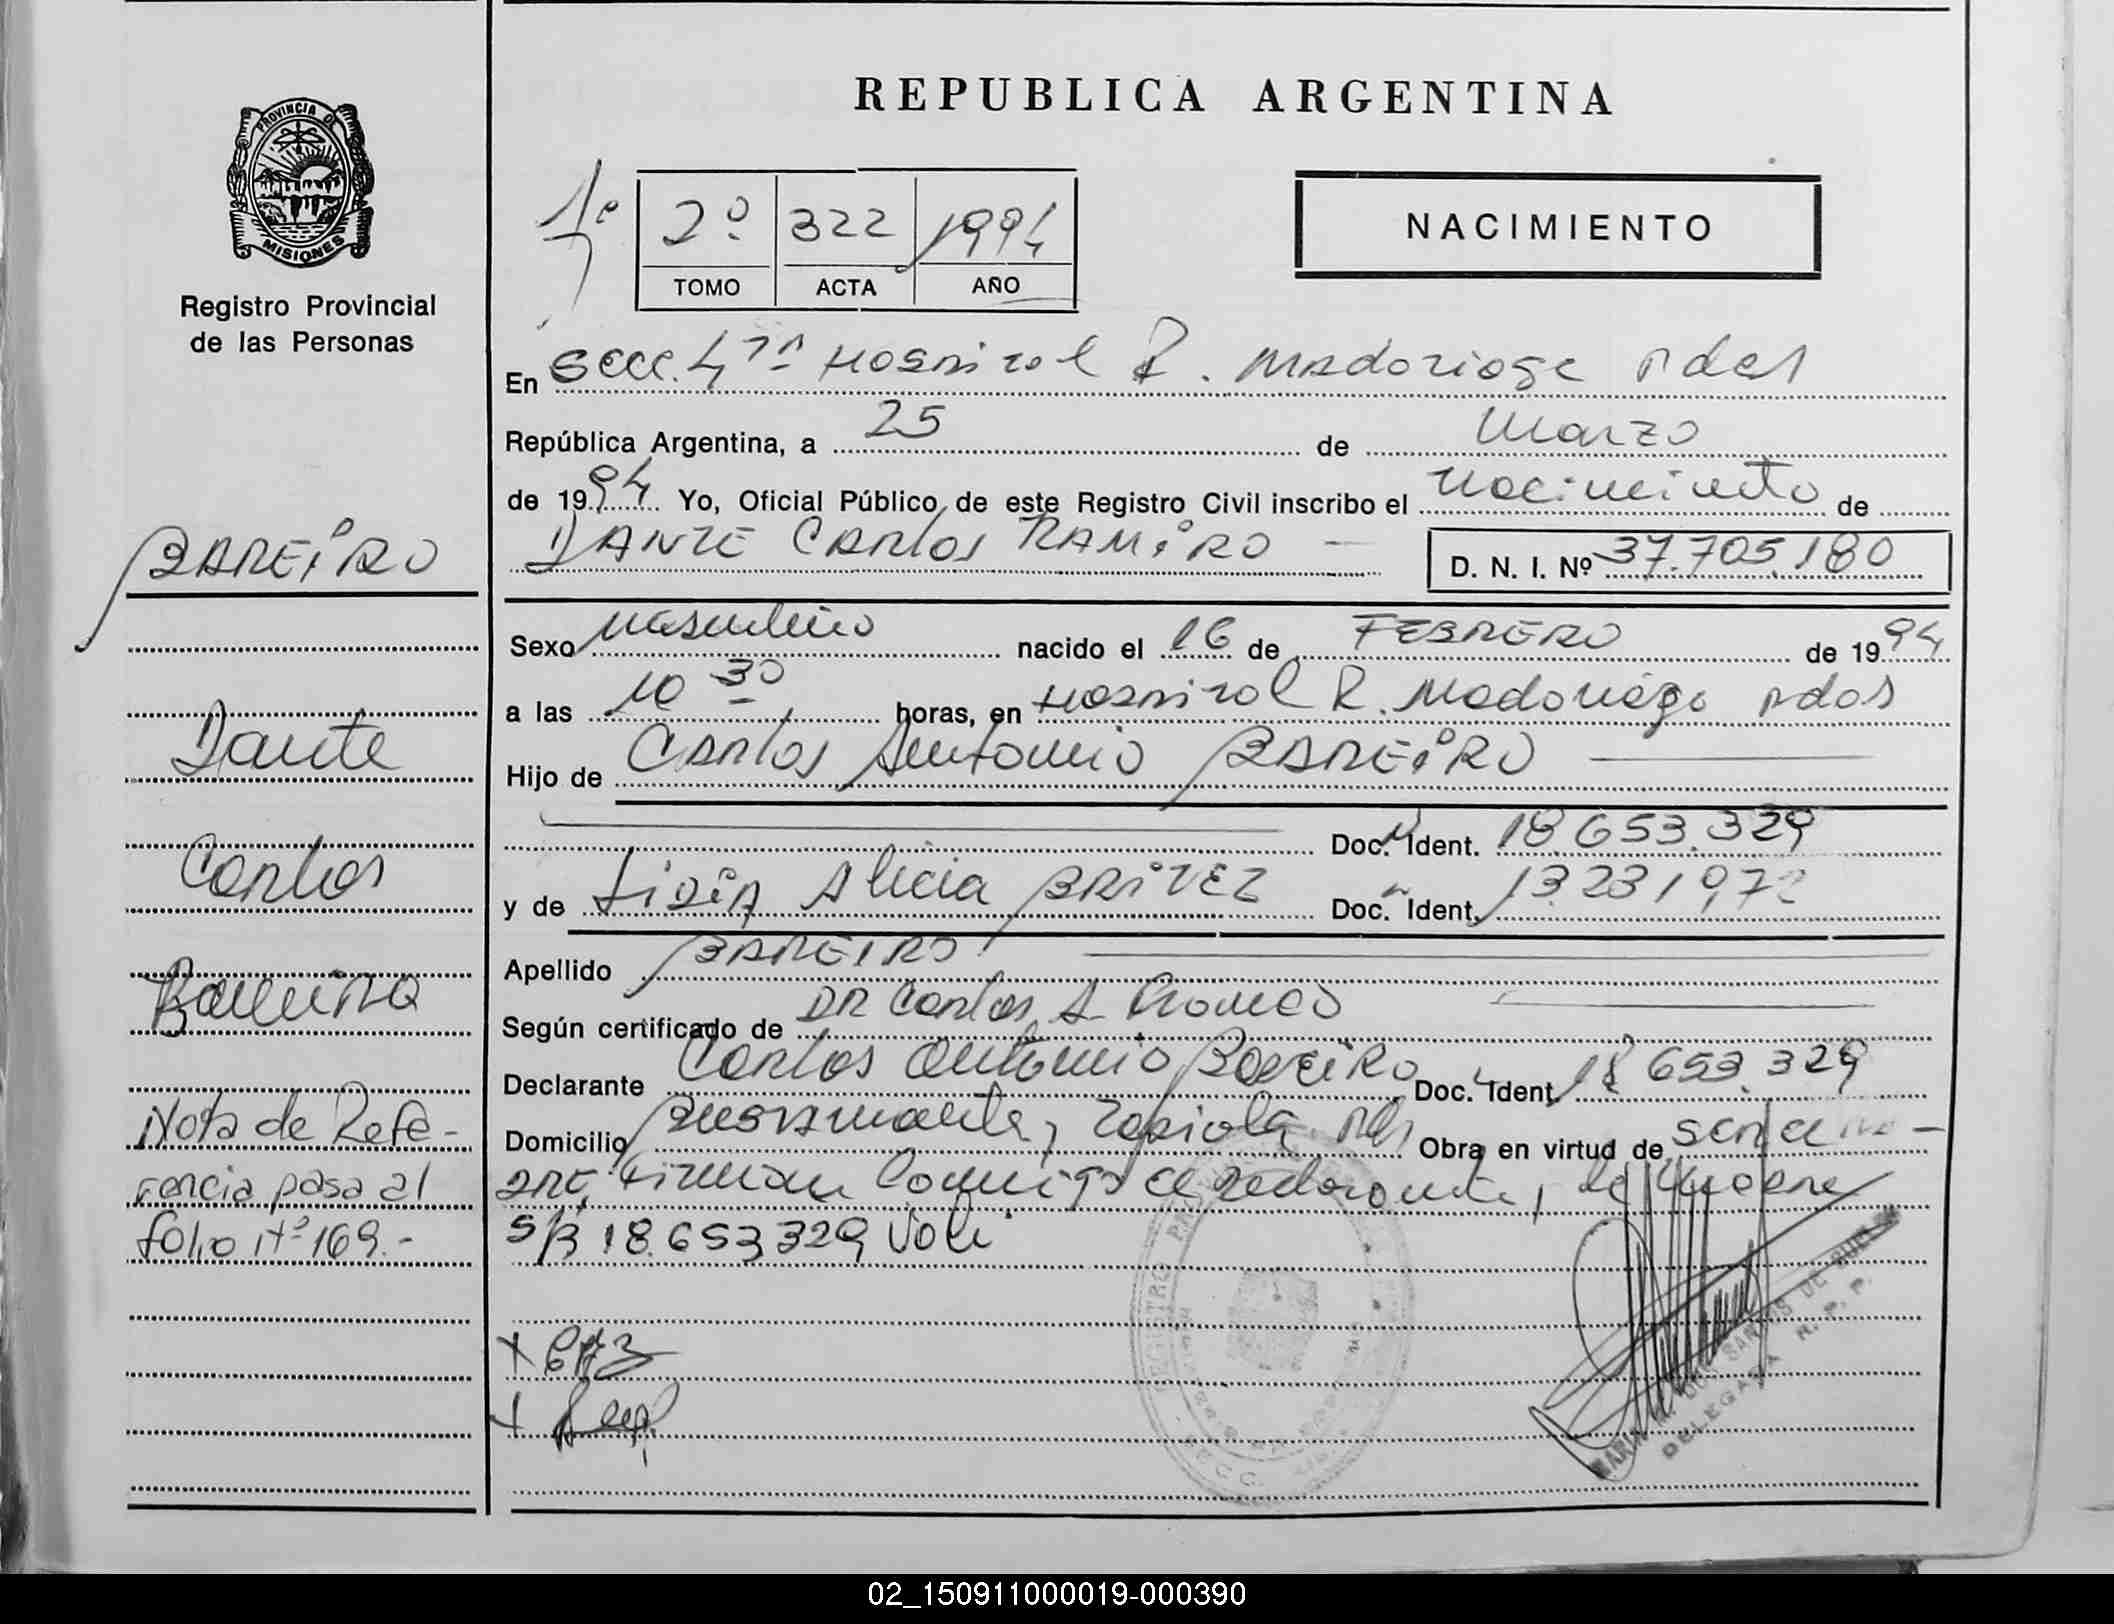 REPUBLICA ARGENTINA
PROVINCIA DE
MISIONES
Registro Provincial
de las Personas
2º 322 1994
TOMO ACTA AÑO
NACIMIENTO
En Secc. 4ta Hospital R. Madariaga Pdas
República Argentina, a 25 de Marzo
de 1994 Yo, Oficial Público de este Registro Civil inscribo el Nacimiento de
DANTE CARLOS RAMIRO
D. N. I. Nº 37.705.180
Sexo Masculino nacido el 16 de FEBRERO de 1994
a las 10 30 horas, en Hospital R. Madariaga Pdas
Hijo de Carlos Antonio BAREIRO
Doc. Ident. 18.653.329
y de Lidia Alicia BRITEZ Doc. Ident. 13.231.972
Apellido BAREIRO
Según certificado de DR Carlos A
Declarante Carlos Antonio Bareiro Doc. Ident. 18 653.329
Domicilio Obra en virtud de
Firman Conmigo el declarante,
18.653329 Vale
BAREIRO
Dante
Carlos
Ramiro
Nota de Refe-
rencia pasa al
folio Nº 169.-
DELEGADA R. P. P.
02_150911000019-000390